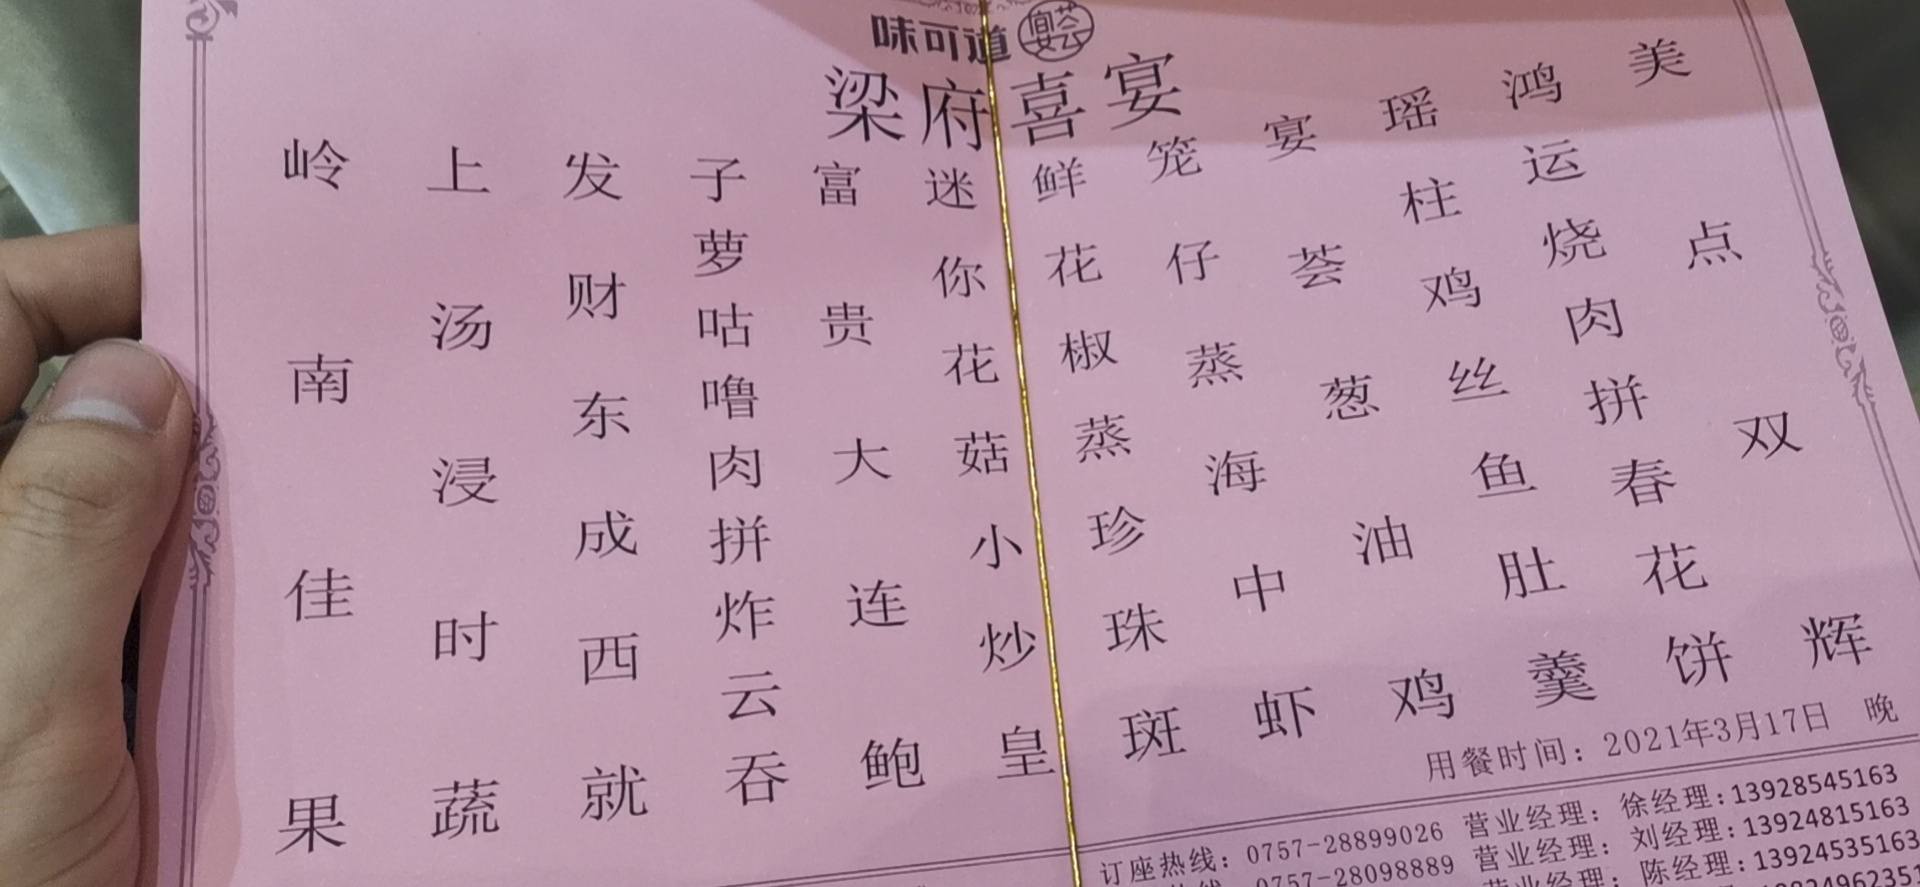 味可道 宴荟
梁府喜宴
美点双辉
鸿运烧肉拼春花饼
瑶柱鸡丝鱼肚羹
宴荟葱油鸡
笼仔蒸海中虾
鲜花椒蒸珍珠斑
迷你花菇小炒皇
富贵大连鲍
子萝咕噜肉拼炸云吞
发财东成西就
上汤浸时蔬
岭南佳果
用餐时间：2021年3月17日 晚
订座热线：0757-28899026 营业经理：徐经理:13928545163
0757-28098889 营业经理：刘经理:13924815163
陈经理:13924535163